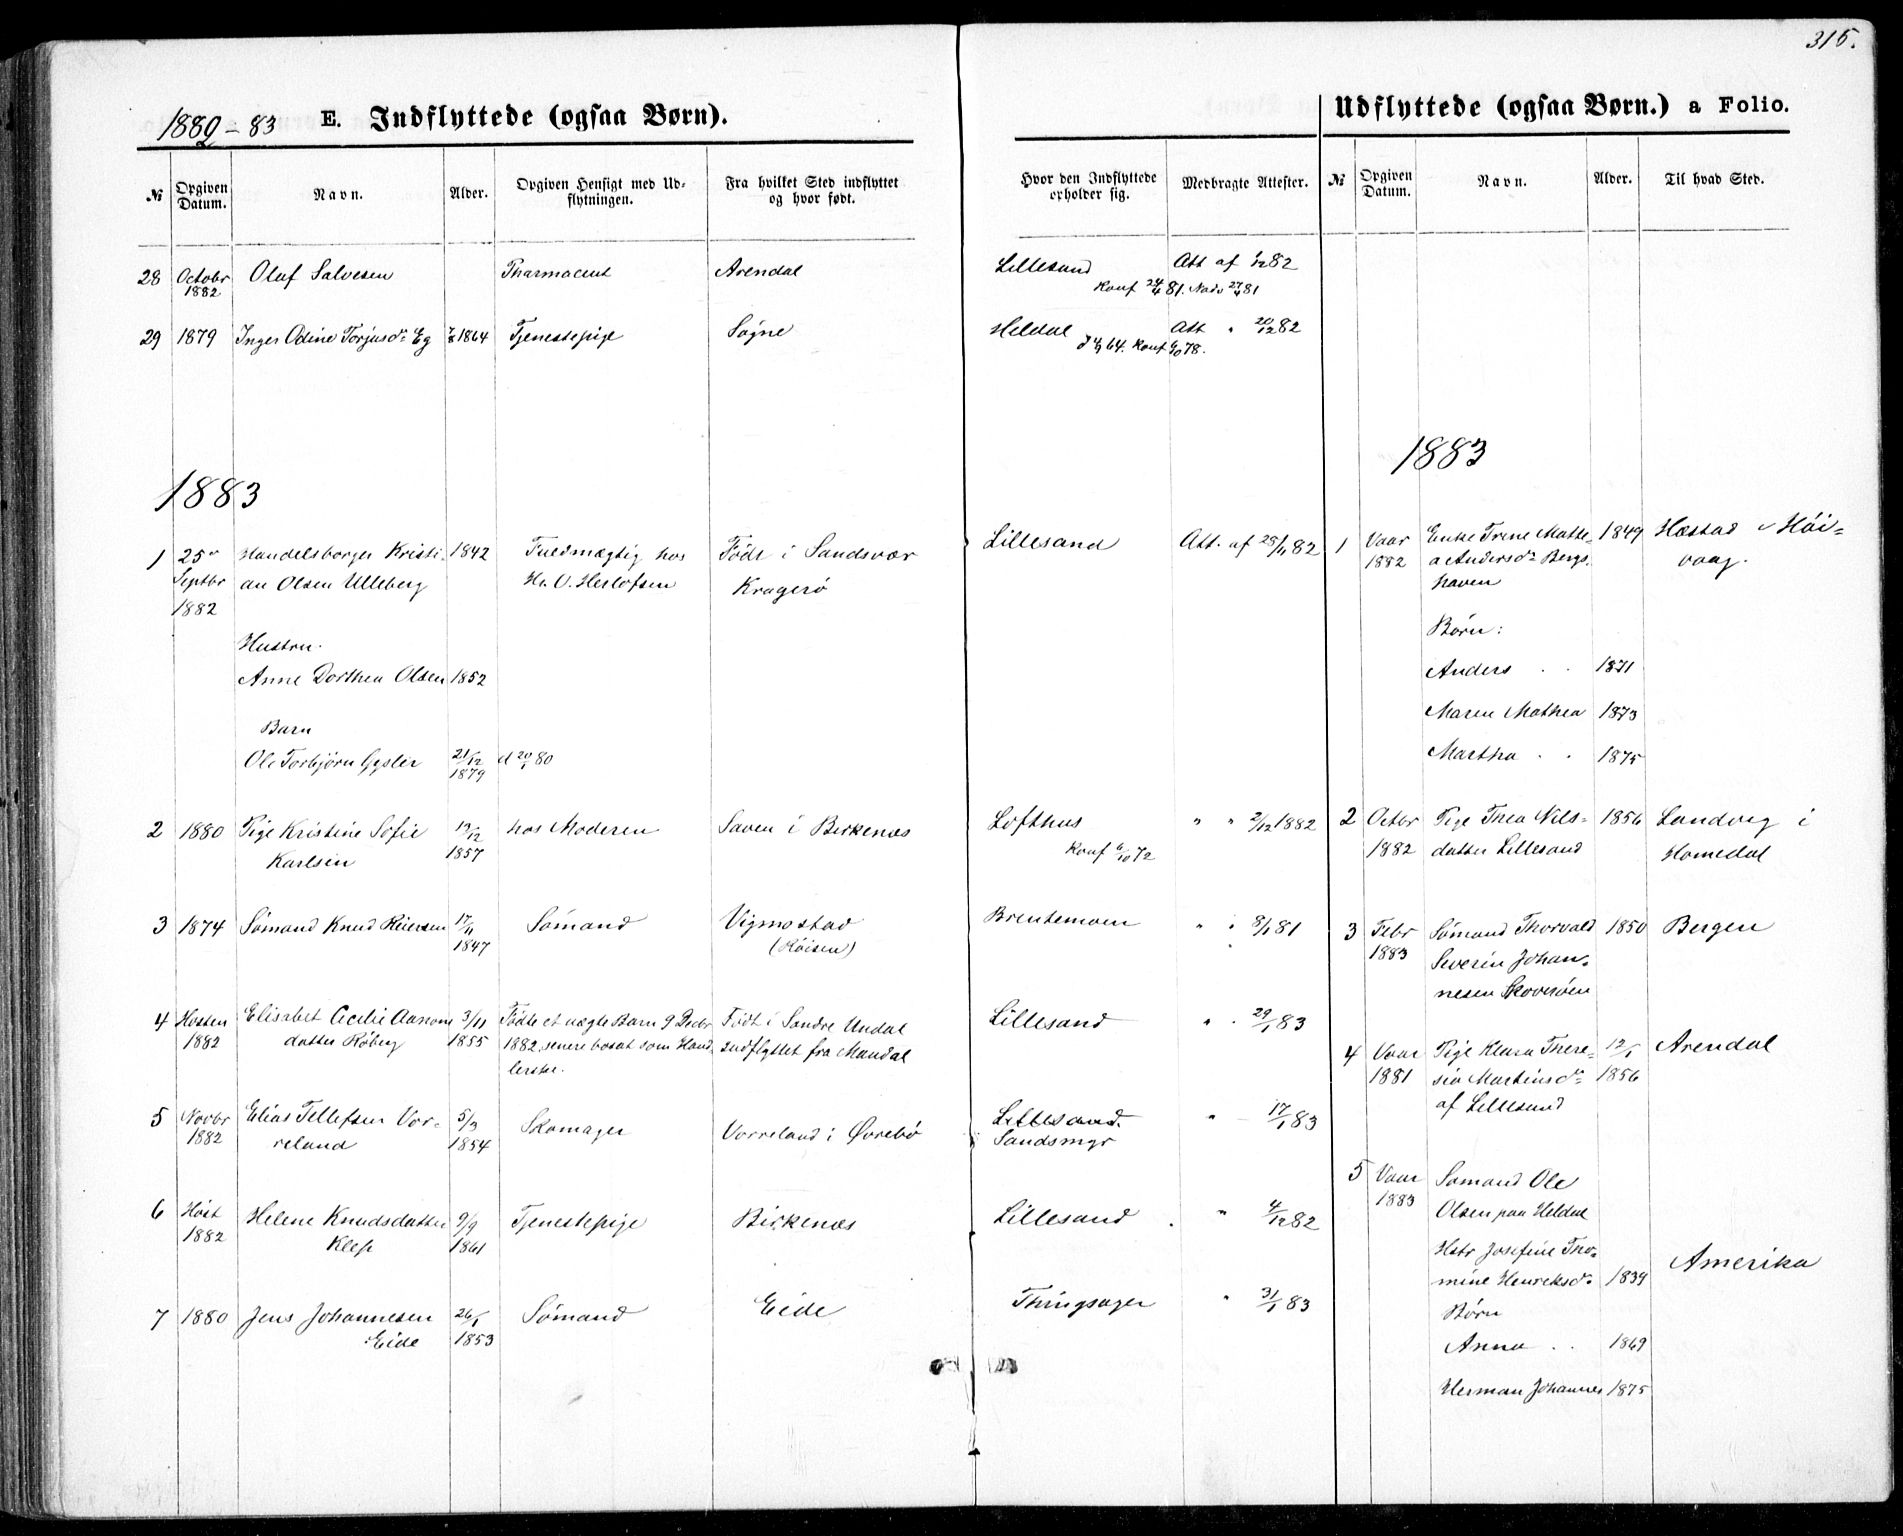 315.
1882-83 E. Indflyttede (ogsaa Børn).
№ Opgiven Datum. Navn. Alder. Opgiven Hensigt med Udflytningen. Fra hvilket Sted indflyttet og hvor født. Hvor den Indflyttede opholder sig. Medbragte Attester.
28 Octobr Olaf Salvesen Pharmaceut Arendal Lillesand Att af 1/12 82
1882 Konf 24/4 81. Nadv 27/4 81
29 1879 Inger Odine Torjusdr Eg 1864 Tjenestepige Søgne Heldal Att " 20/12 82
64. Konf 6/10 78.
1883
1 25de Handelsborger Kristi- 1842 Fuldmægtig hos Født i Sandsvær Lillesand Att. af 28/11 82
Septbr an Olsen Ulleberg Hr. O. Herlofsen Kragerø
1882
Hustru.
Anne Dorthea Olsen 1852
Barn
Ole Torbjørn Gysler 21/12 d 20/1 80
1879
2 1880 Pige Kristine Sofie 13/12 hos Moderen Saven i Birkenæs Lofthus " " 2/12 1882
Karlsen 1857 Konf 6/10 72
3 1874 Sømand Knud Reiersen 17/11 Sømand Vigmostad Brentemoen " " 8/1 81
1847 (Røisen)
4 Høsten Elisabet Cecilie Aanons 3/11 Fødte et uægte Barn 9 Decbr Født i Søndre Undal Lillesand " . 29/1 83
1882 datter Røberg 1855 1882, senere bosat som Hand- indflyttet fra Mandal
lerske.
5 Novbr Elias Tellefsen Vor- 5/3 Skomager Vorreland i Øvrebø Lillesand. " - 17/1 83
1882 reland 1854 Sandsmyr
6 Høst Helene Knudsdatter 9/9 Tjenestepige Birkenæs Lillesand . " 4/12 82
1882 Klep 1861
7 1880 Jens Johannesen 26/1 Sømand Eide Thingsager " 31/1 83
Eide 1853
Udflyttede (ogsaa Børn.) a Folio.
№ Opgiven Datum. Navn. Alder. Til hvad Sted.
1883
1 Vaar Enke Trine Mathe- 1849 Hæstad i Høi-
1882 a Andersdr Bergs- vaag.
haven
Børn:
Anders . . 1871
Maren Mathea 1873
Martha . . 1875
2 Octbr Pige Thea Nils- 1856 Landvig i
1882 datter Lillesand Homedal
3 Febr Sømand Thorvald 1850 Bergen
1883 Severin Johan-
nesen Skoverøen
4 Vaar Pige Klara There- 12/1 Arendal
1881 sia Martinsdr 1856
af Lillesand
5 Vaar Sømand Ole
1883 Olsen paa Heldal
Hstr Josefine Tho- Amerika
mine Henriksdr 1839
Børn
Anna . . 1869
Herman Johannes 1875